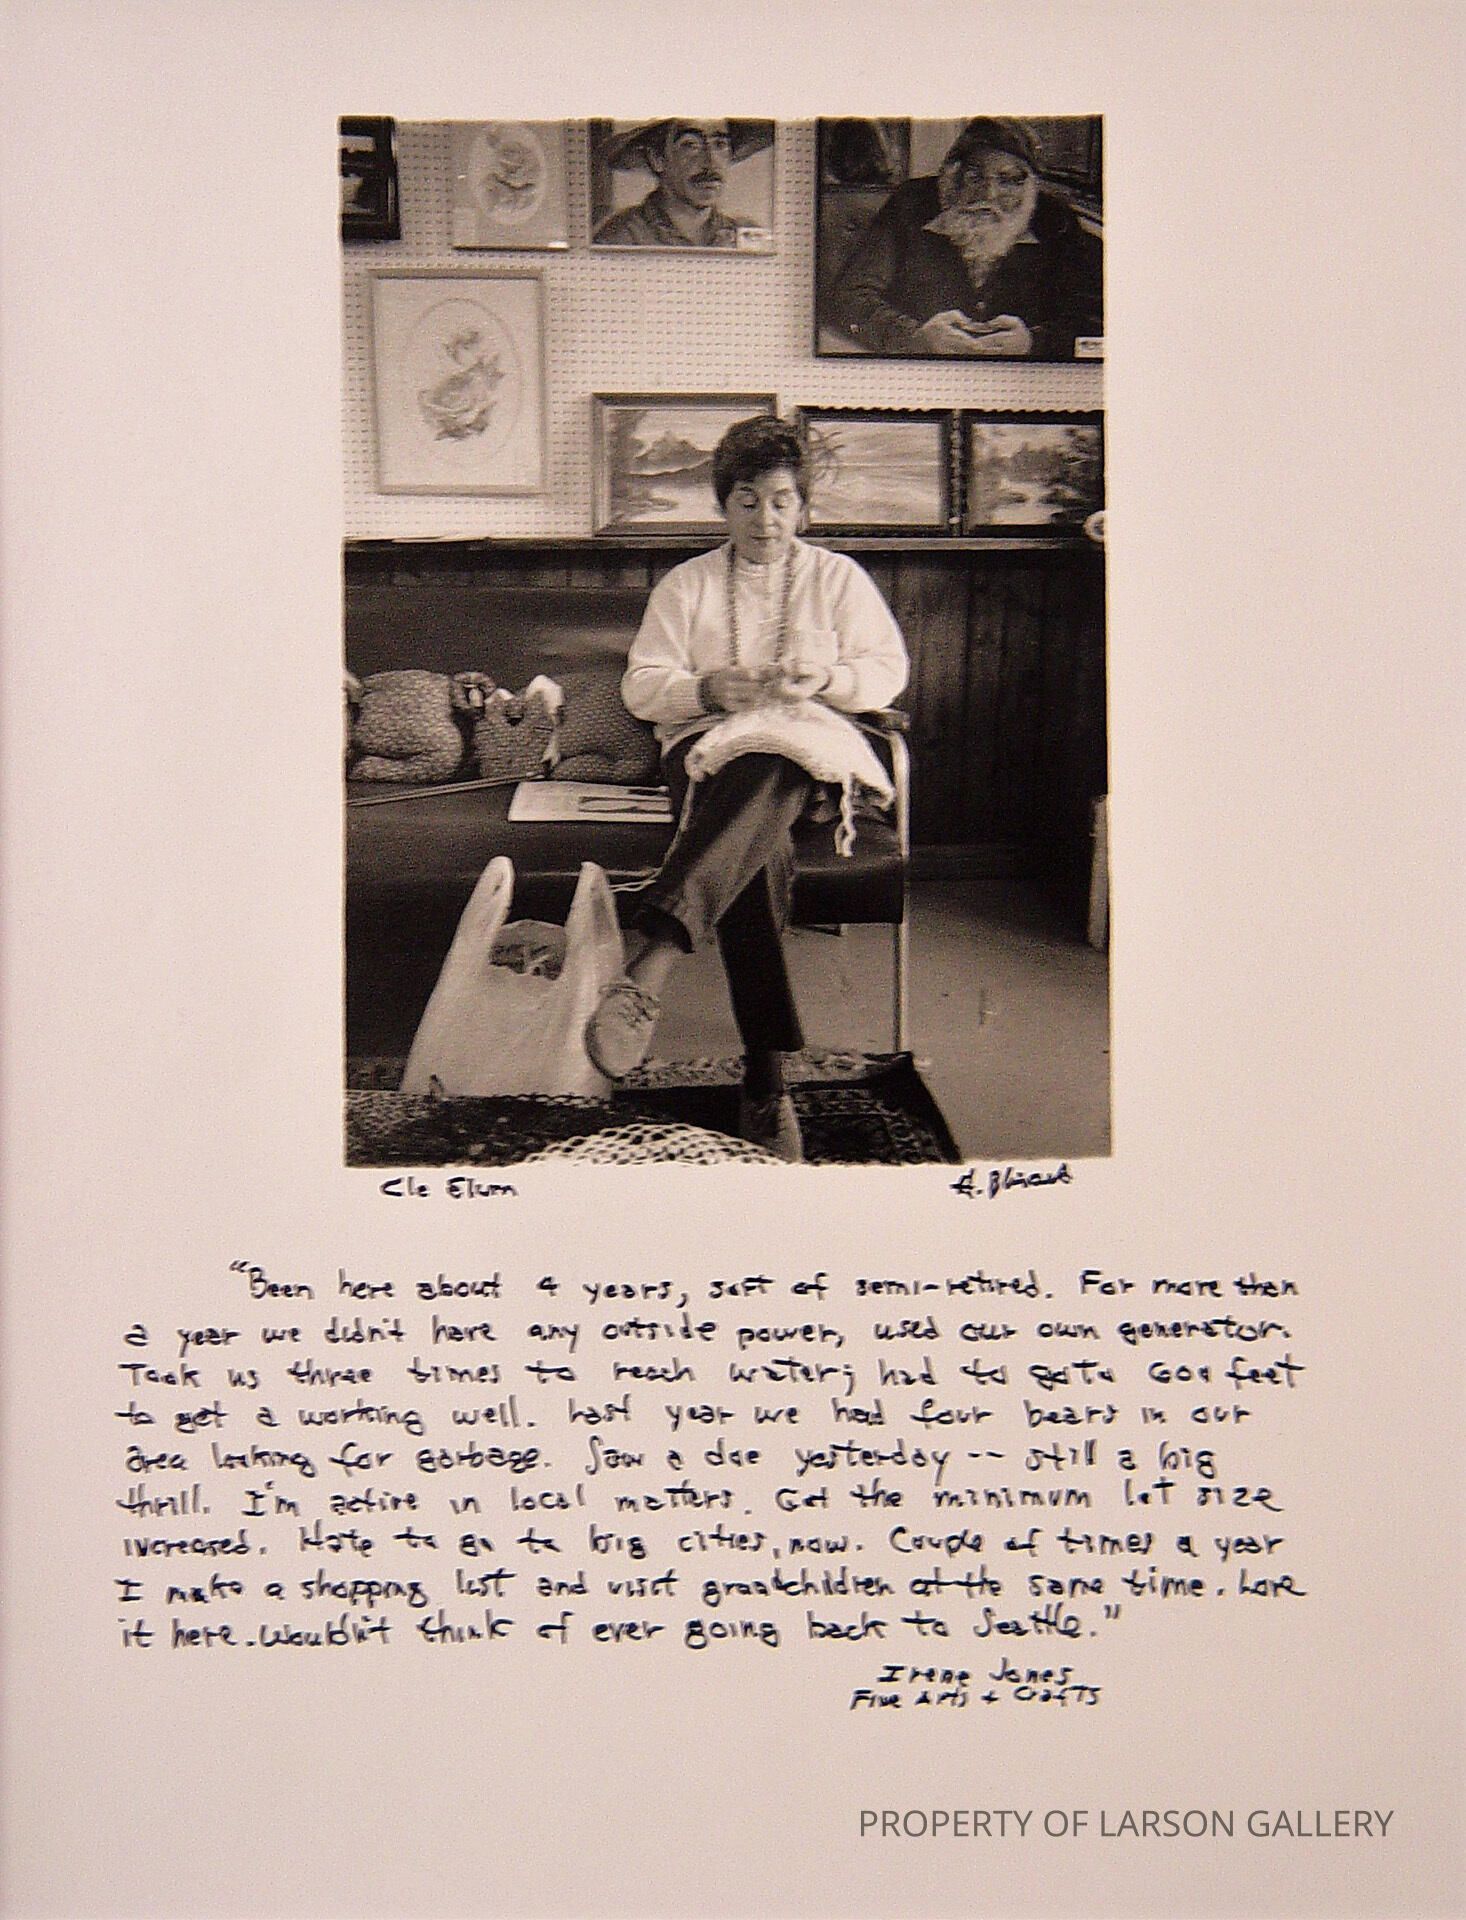 Cle Elum
"Been here about 4 years, sort of semi-retired. For more than
a year we didn't have any outside power, used our own generator.
Took us three times to reach water; had to go to 600 feet
to get a working well. Last year we had four bears in our
area looking for garbage. Saw a doe yesterday -- still a big
thrill. I'm active in local matters. Got the minimum lot size
increased. Hate to go to big cities, now. Couple of times a year
I make a shopping list and visit grandchildren at the same time. Love
it here. Wouldn't think of ever going back to Seattle."
Irene Jones
Fine Arts + Crafts
PROPERTY OF LARSON GALLERY